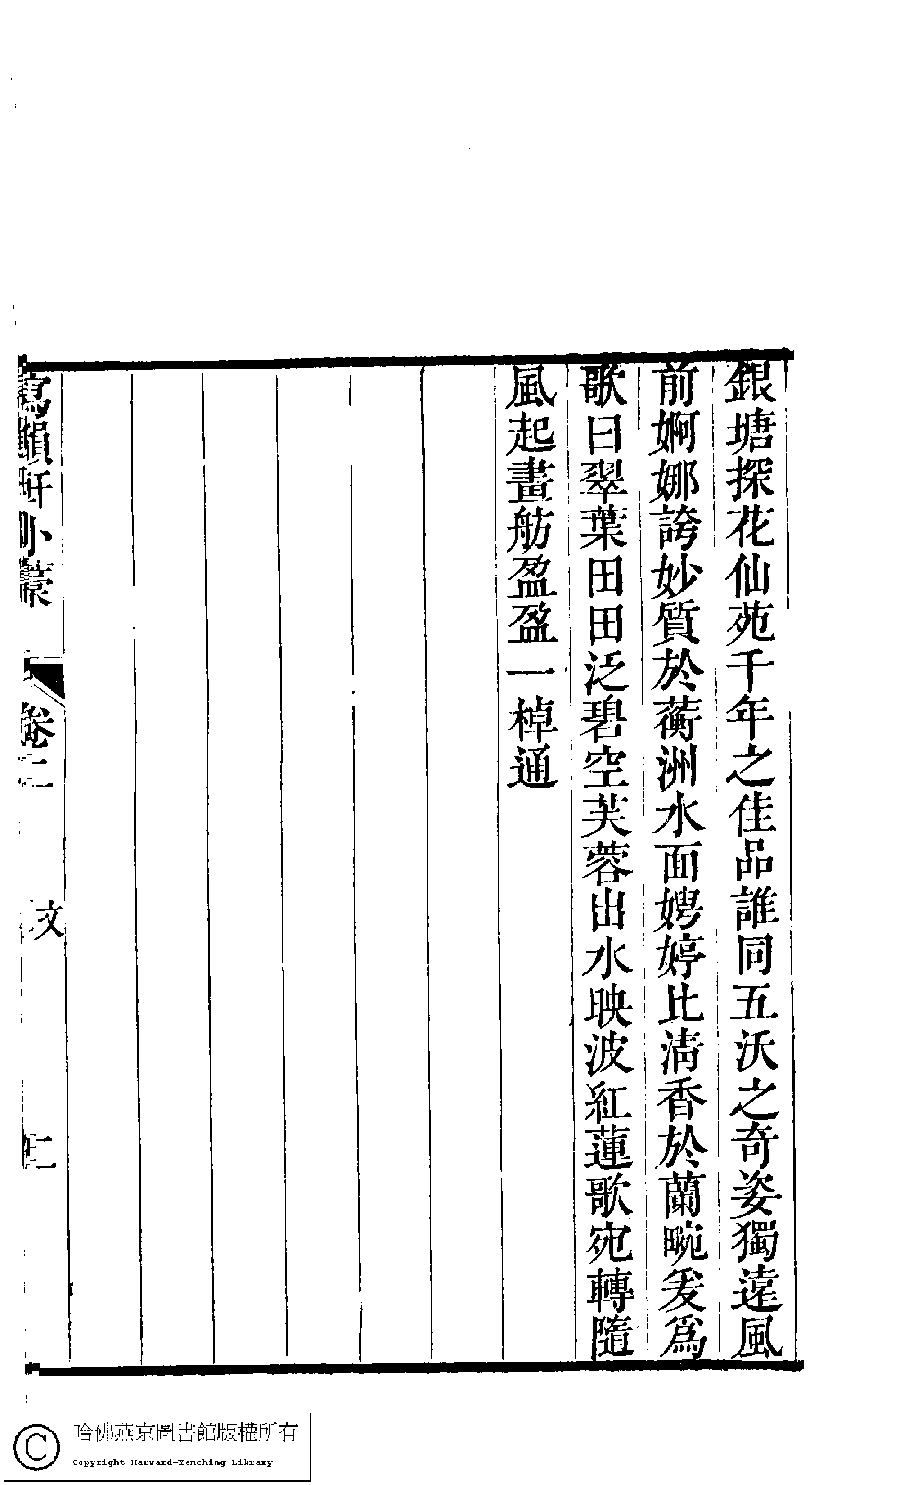 銀塘探花仙苑千年之佳品誰同五沃之奇姿獨遠風
前婀娜誇妙質於蘅洲水面娉婷比清香於蘭畹爰爲
歌曰翠葉田田泛碧空芙蓉出水映波紅蓮歌宛轉隨
風起畫舫盈盈一棹通
寫韻軒小藁
卷二
文
二
哈佛燕京圖書館版權所有
Copyright Harvard-Yenching Library